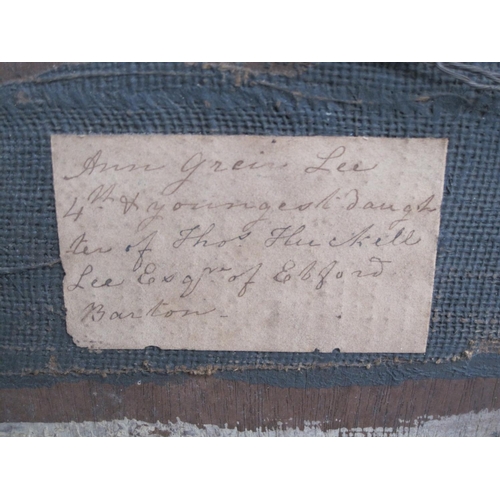 Ann Grein Lee
4th & youngest daugh
ter of Thos Huckell
Lee Esqre of Ebford
Barton -